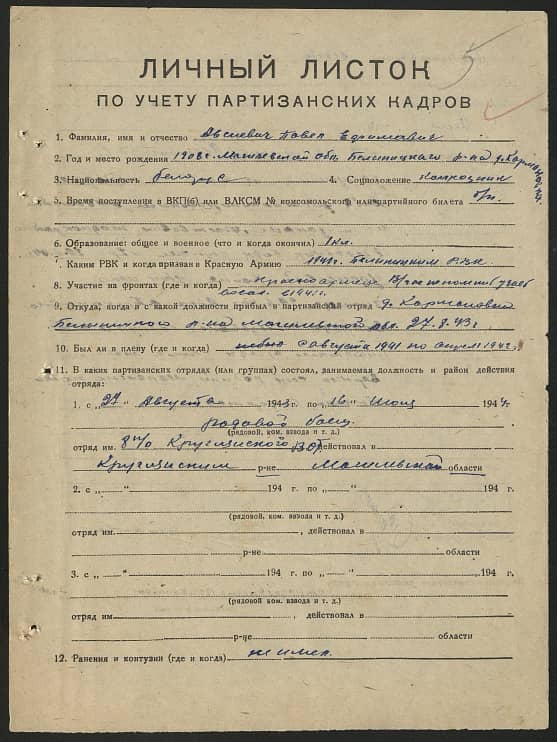 5
ЛИЧНЫЙ ЛИСТОК
ПО УЧЕТУ ПАРТИЗАНСКИХ КАДРОВ
1. Фамилия, имя и отчество Авсиевич Павел Ефимович
2. Год и место рождения 1908г. Могилевской обл. Белыничского р-на д. Кармановка
3. Национальность белорус 4. Соцположение Колхозник
5. Время поступления в ВКП(б) или ВЛКСМ № комсомольского или партийного билета б/п.
6. Образование: общее и военное (что и когда окончил) 1 кл.
7. Каким РВК и когда призван в Красную Армию 1941г. Белыничским РВК
8. Участие на фронтах (где и когда) Красноармеец
1941г.
9. Откуда, когда и с какой должности прибыл в партизанский отряд д. Кармановка
Белыничского р-на Могилевской обл. 27.8.43г.
10. Был ли в плену (где и когда) с августа 1941 по апрель 1942г.
11. В каких партизанских отрядах (или группах) состоял, занимаемая должность и район действия
отряда:
1. с „27" Августа 1943 г. по „16" Июля 1944 г.
рядовой боец
(рядовой, ком. взвода и т. д.)
отряд им. 8 п/о Круглянского ВОГ действовал в
Круглянский р-не Могилевской области
2. с „ " 194 г. по „ " 194 г.
(рядовой, ком. взвода и т. д.)
отряд им. , действовал в
р-не области
3. с „ " 194 г. по „ " 194 г.
(рядовой, ком. взвода и т. д.)
отряд им , действовал в
р-не области
12. Ранения и контузии (где и когда) не имел.